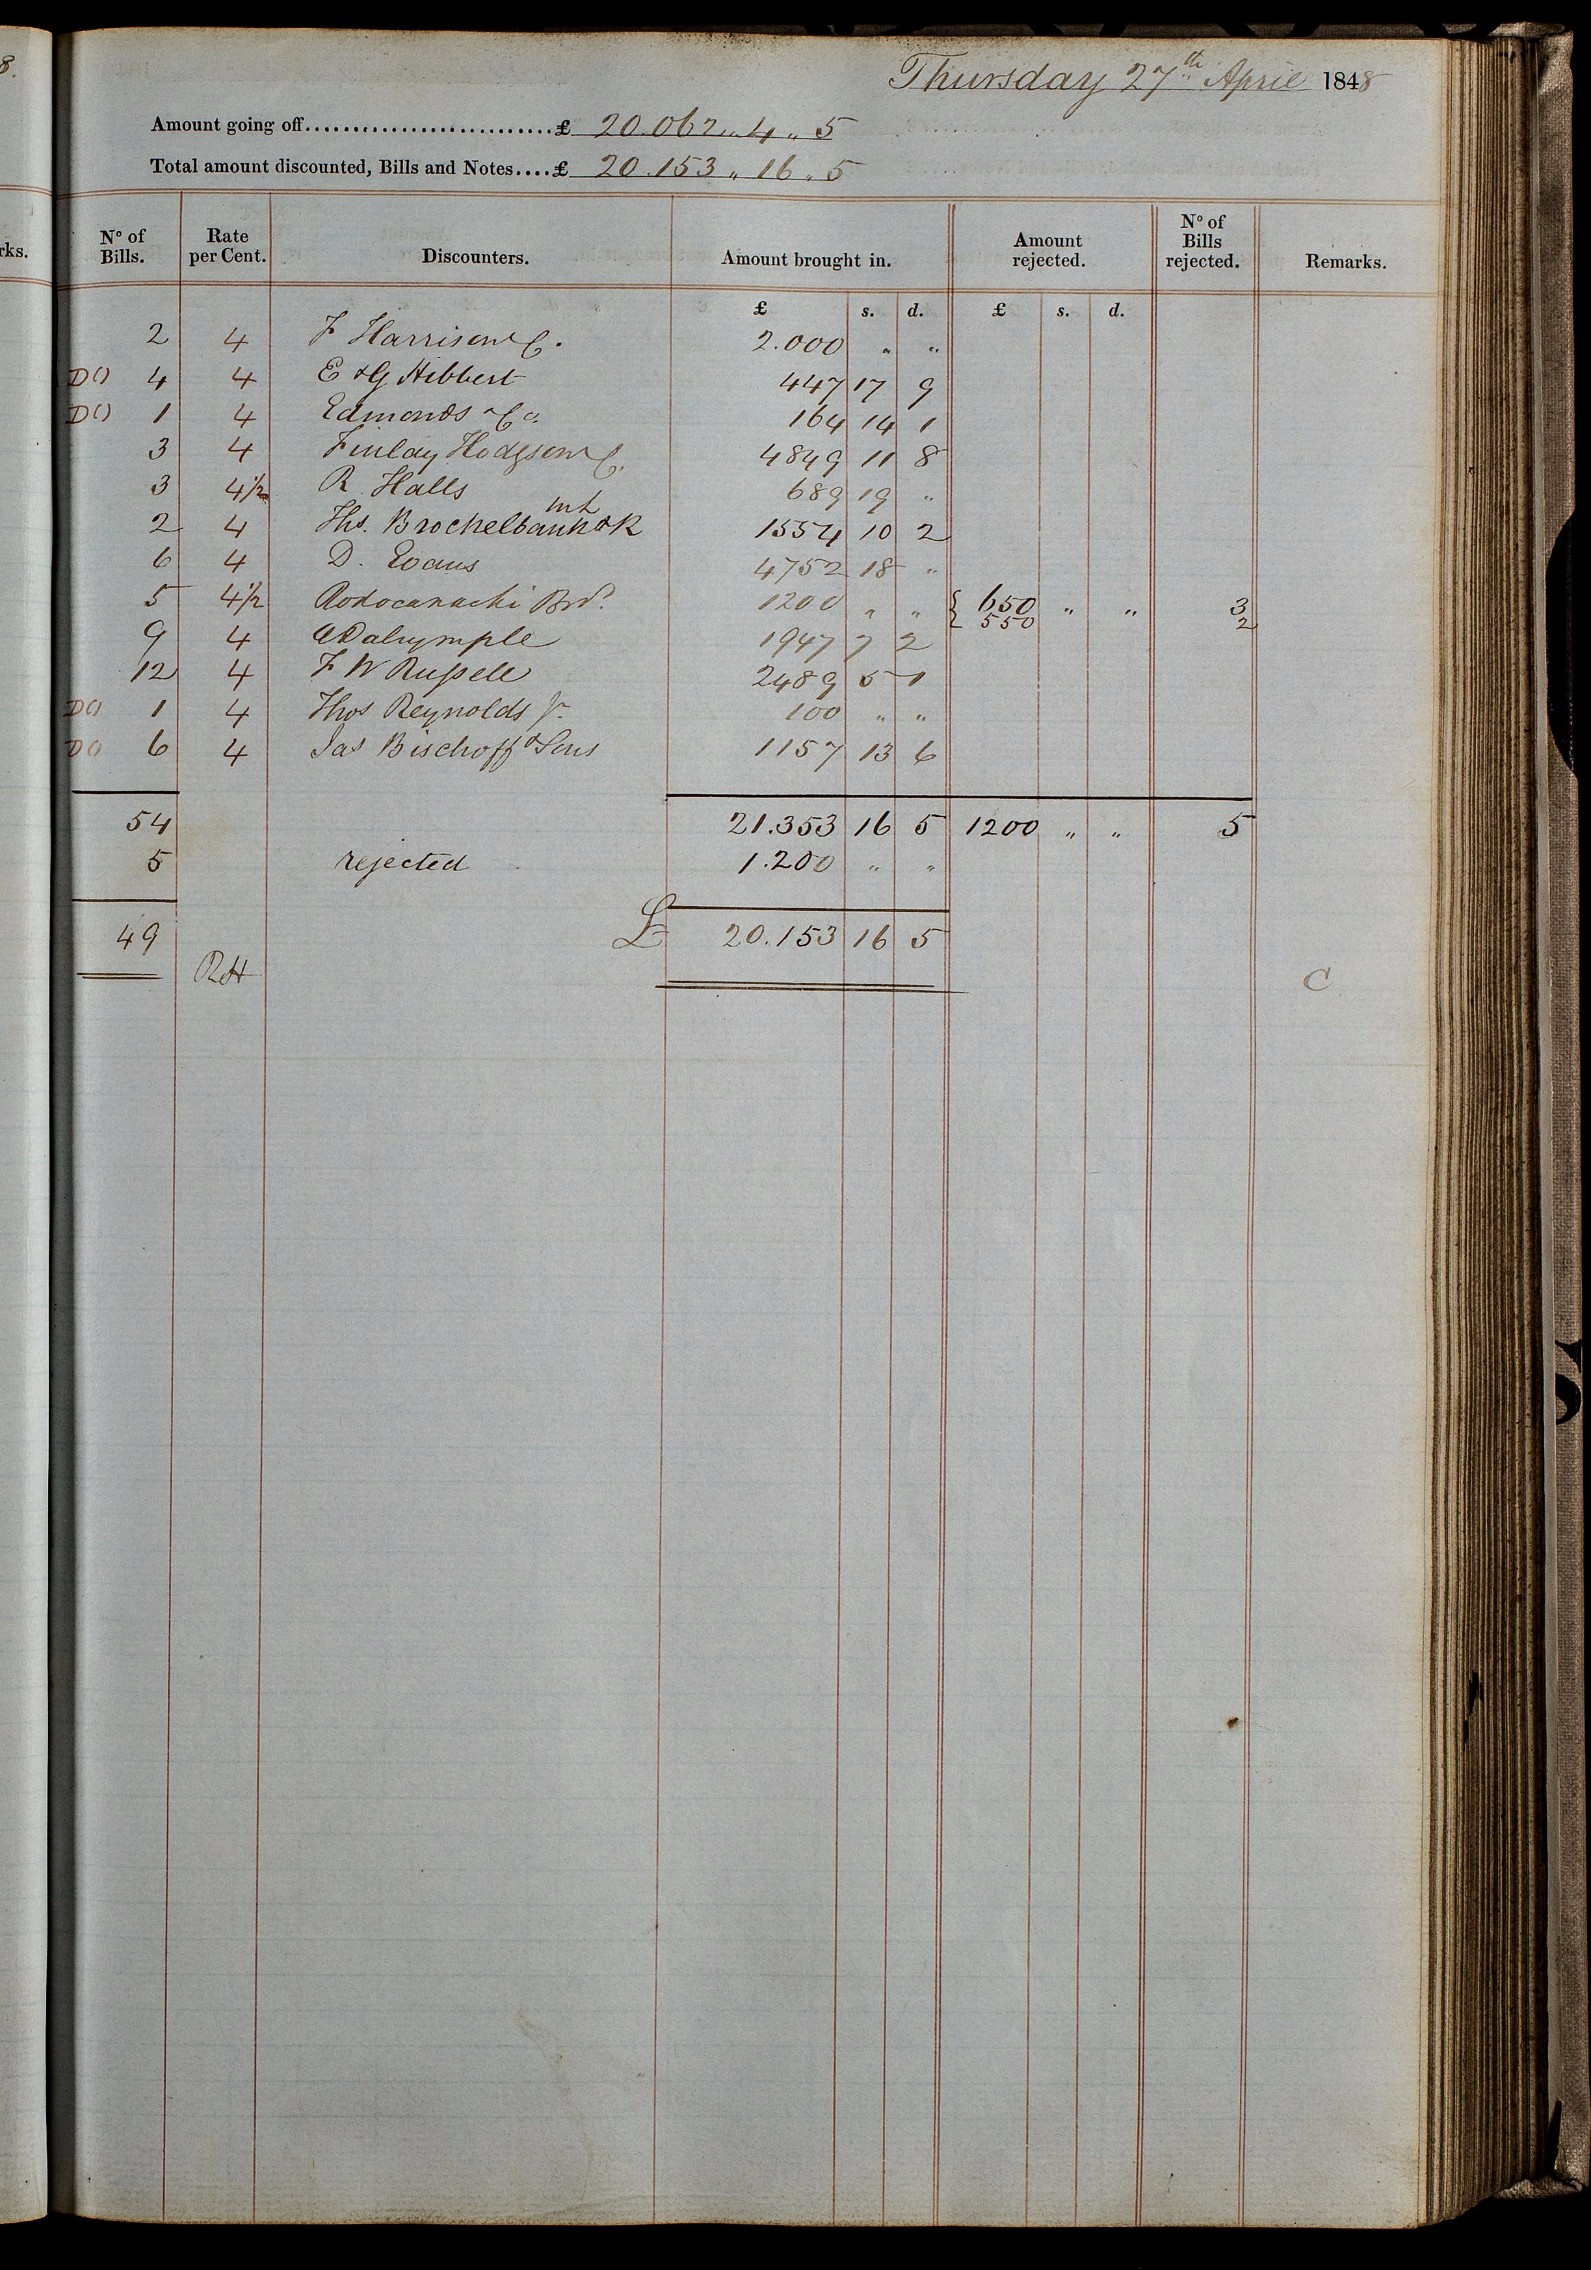 8.
rks.
Thursday 27th April 1848
Amount going off...........................£ 20.062 „ 4 „ 5
Total amount discounted, Bills and Notes....£ 20.153 „ 16 „ 5
No of Bills. Rate per Cent. Discounters. Amount brought in. Amount rejected. No of Bills rejected. Remarks.
£ s. d. £ s. d.
2 4 F Harrison & C. 2.000 „ „
DO 4 4 E & G Hibbert 447 17 9
DO 1 4 Edmonds & Co 164 14 1
3 4 Finlay Hodgson & C. 4849 11 8
3 4½ R Halls 689 19 „
2 4 Ths. Brockelbank & R 1554 10 2
6 4 D. Evans 4752 18 „
5 4½ Rodocanachi Brs. 1200 „ „ { 650 „ „ 3
550 2
9 4 A Dalrymple 1947 7 2
12 4 F W Russell 2489 5 1
DO 1 4 Thos Reynolds Jr. 100 „ „
DO 6 4 Jas Bischoff & Sons 1157 13 6
54 21.353 16 5 1200 „ „ 5
5 rejected 1.200 „ „
49 £ 20.153 16 5
RH C